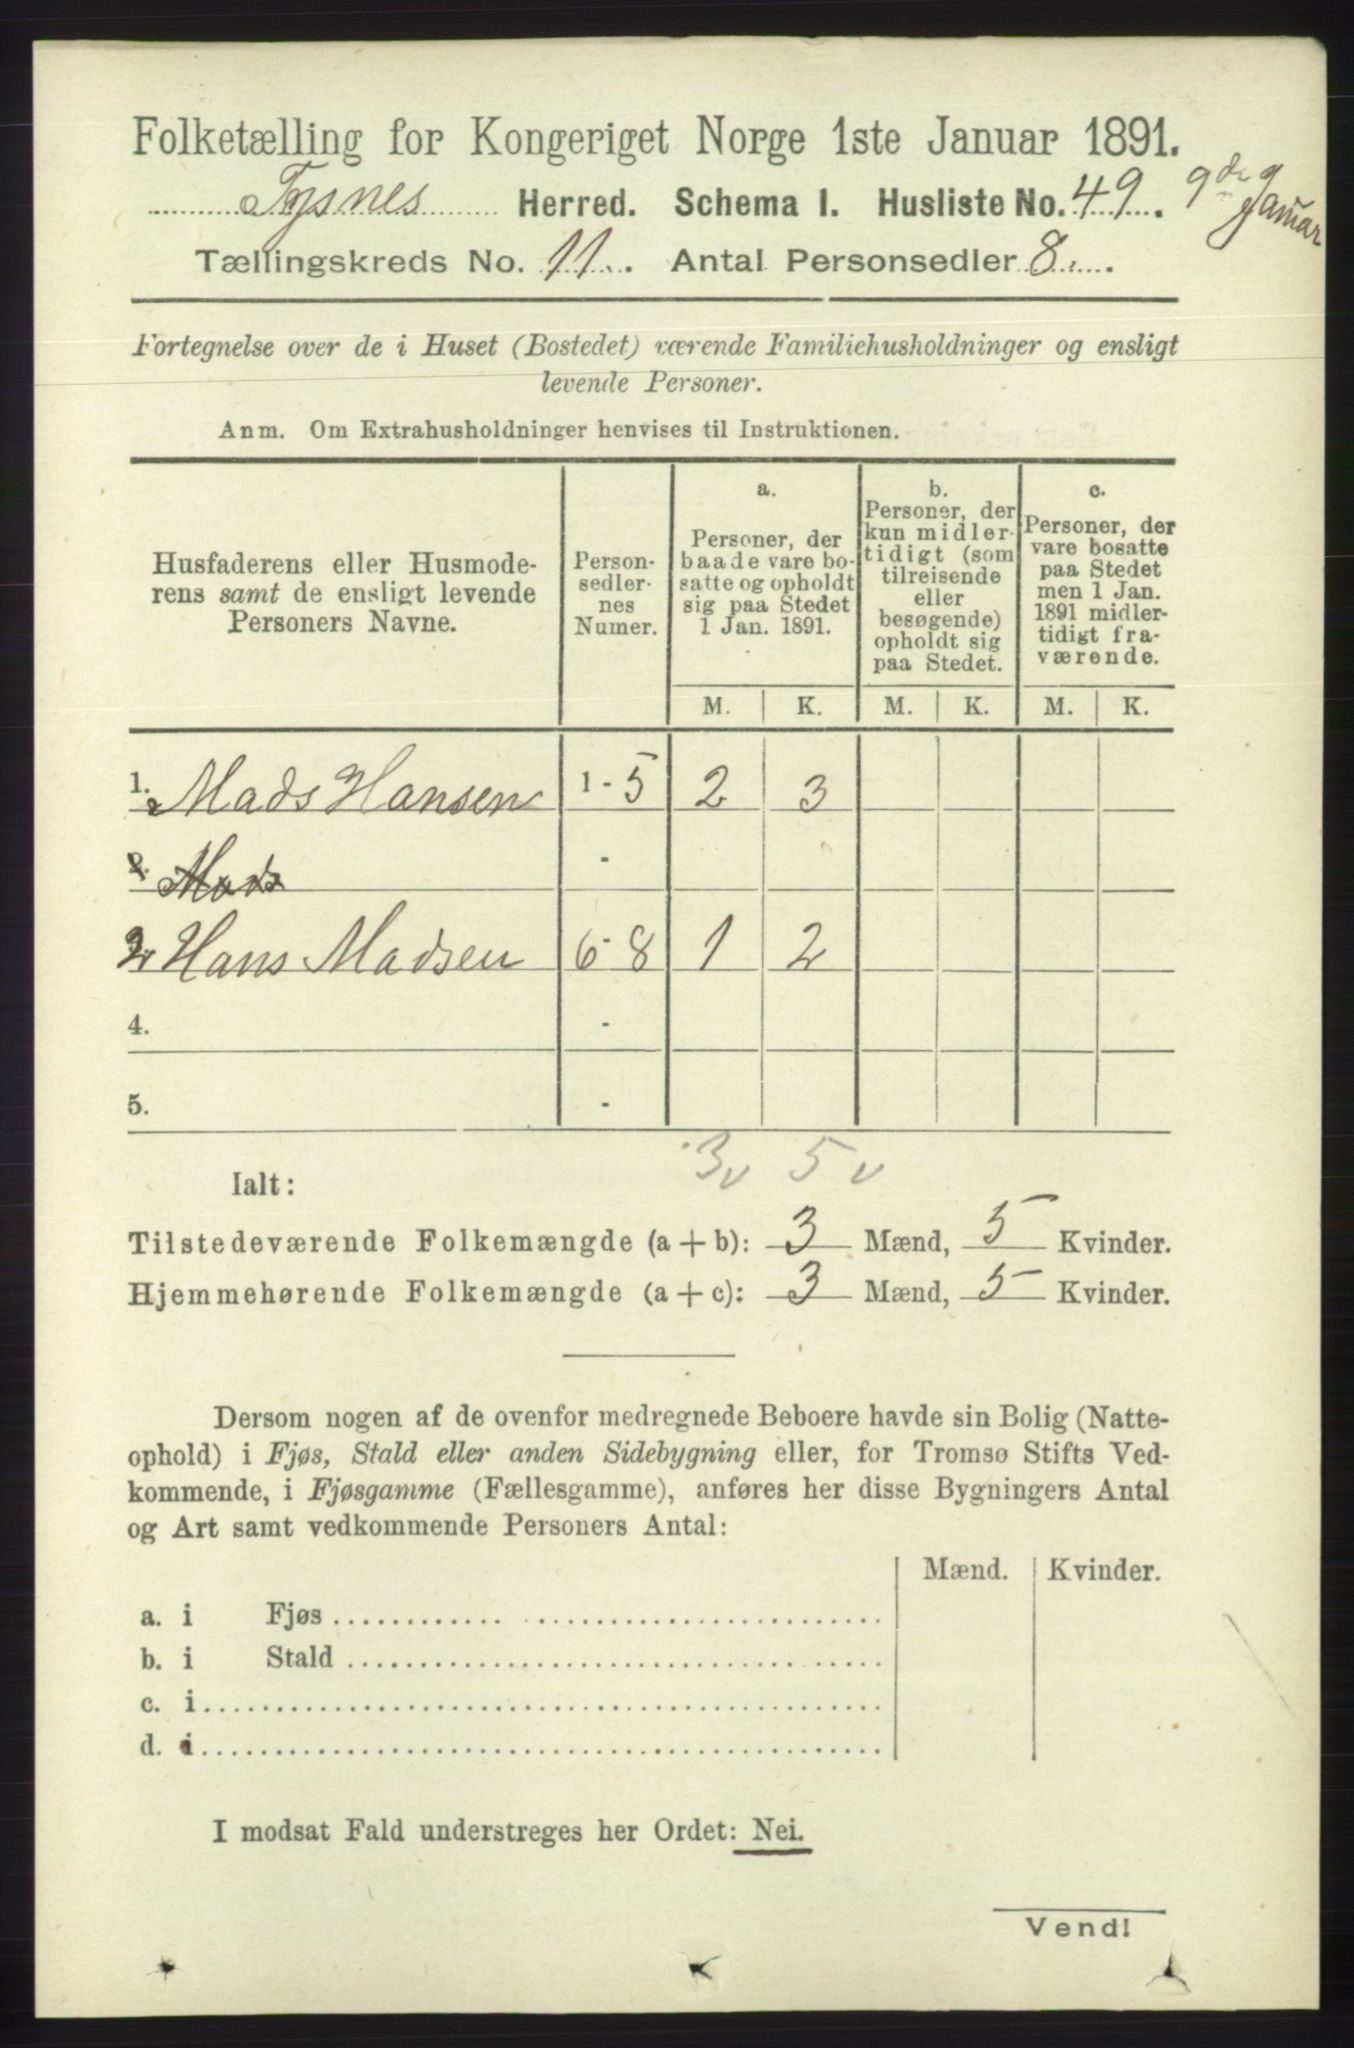 Folketælling for Kongeriget Norge 1ste Januar 1891.
Tysnes Herred. Schema I. Husliste No. 49. 9de Januar
Tællingskreds No. 11. Antal Personsedler 8.
Fortegnelse over de i Huset (Bostedet) værende Familiehusholdninger og ensligt
levende Personer.
Anm. Om Extrahusholdninger henvises til Instruktionen.
Husfaderens eller Husmode-
rens samt de ensligt levende
Personers Navne.
Person-
sedler-
nes
Numer.
a.
Personer, der
baade vare bo-
satte og opholdt
sig paa Stedet
1 Jan. 1891.
b.
Personer, der
kun midler-
tidigt (som
tilreisende
eller
besøgende)
opholdt sig
paa Stedet.
c.
Personer, der
vare bosatte
paa Stedet
men 1 Jan.
1891 midler-
tidigt fra-
værende.
M. K. M. K. M. K.
1. Mads Hansen 1 - 5 2 3
2. Mads -
2 Hans Madsen 6 - 8 1 2
4. -
5. -
3 v 5 v
Ialt:
Tilstedeværende Folkemængde (a + b): 3 Mænd, 5 Kvinder.
Hjemmehørende Folkemængde (a + c): 3 Mænd, 5 Kvinder.
Dersom nogen af de ovenfor medregnede Beboere havde sin Bolig (Natte-
ophold) i Fjøs, Stald eller anden Sidebygning eller, for Tromsø Stifts Ved-
kommende, i Fjøsgamme (Fællesgamme), anføres her disse Bygningers Antal
og Art samt vedkommende Personers Antal:
Mænd. Kvinder.
a. i Fjøs
b. i Stald
c. i
d. i
I modsat Fald understreges her Ordet: Nei.
Vend!